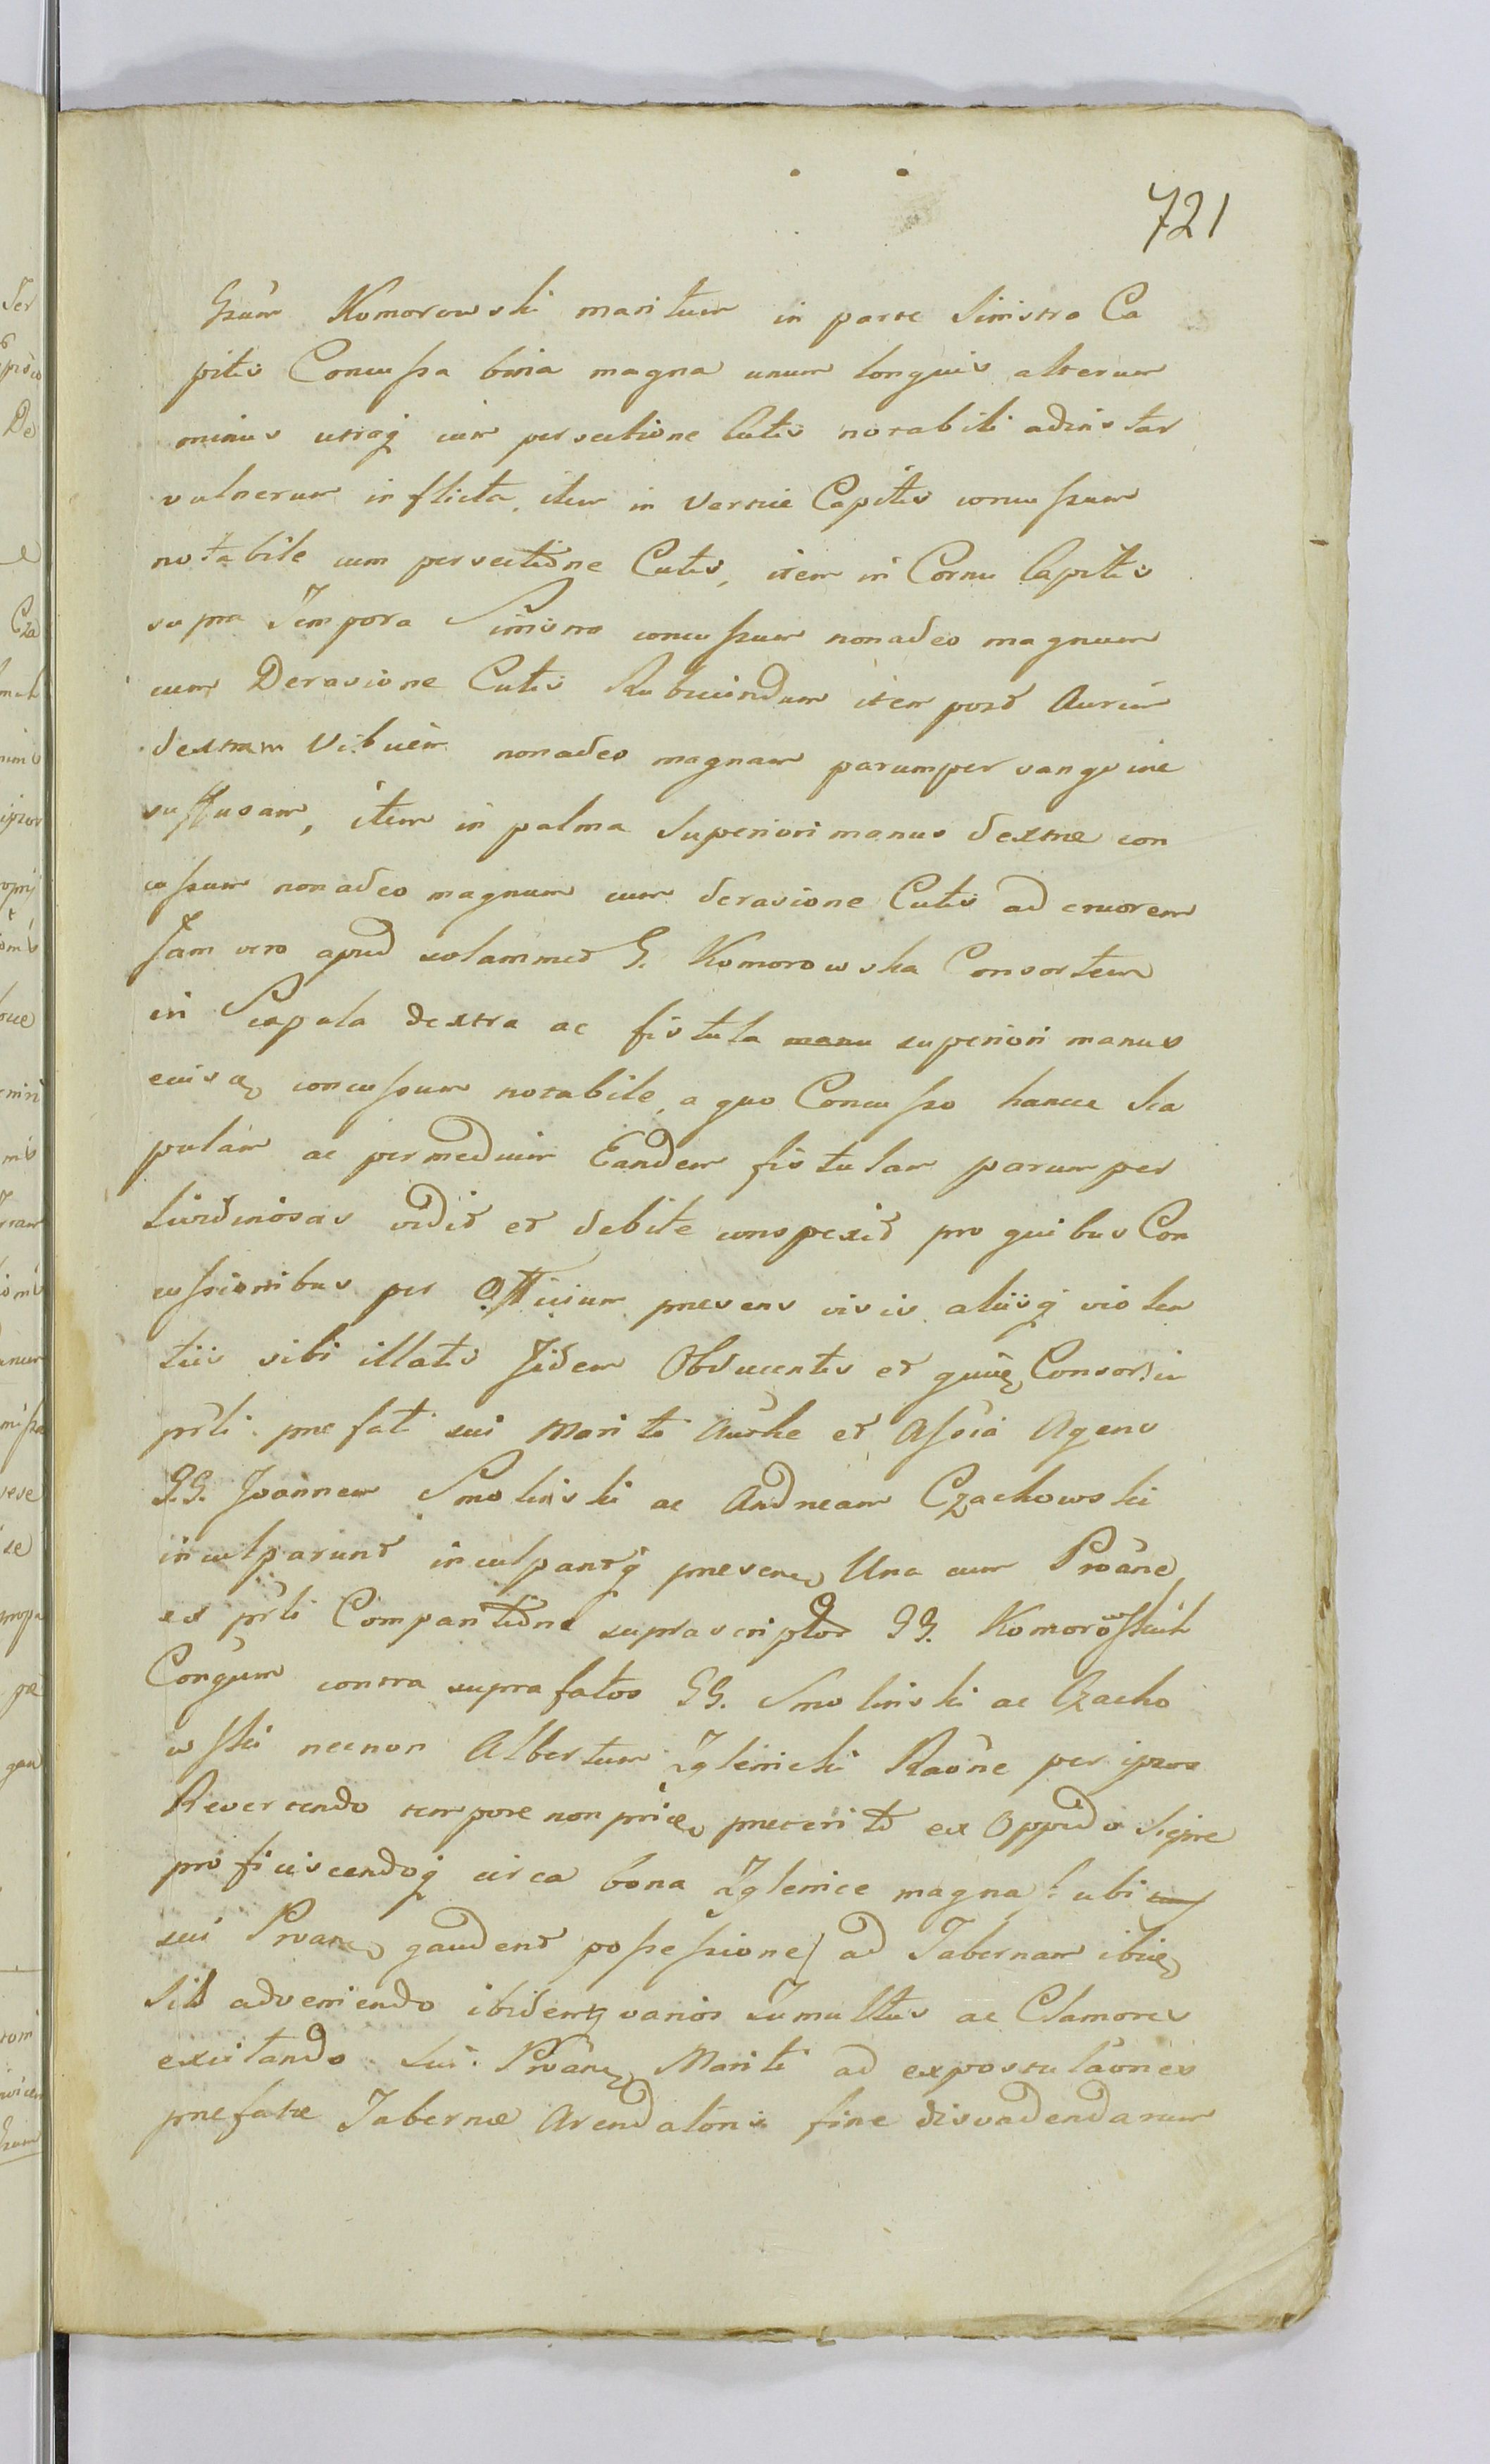 721
Gsum Komorowski maritum in parte Sinistra Ca
pitis Concussa bina magna unum longius alterum
minus utraq cum persectione Cutis notabili adinstar
vulnerum inflicta, item in Vertice Capitis concussum
notabile cum persectione Cutis, item in Cornu Capitis
supra Tempora Sinistro concussum nonadeo magnum
cum Derasione Cutis Rubicundum item post Aurim
dextram Vibicem nonadeo magnam parumper sanguine
suffusam, item in palma Superiori manus dextrae con
cussum nonadeo magnum cum derasione Cutis ad cruorem
Jam vero apud solammet G. Komorowska Consortem
in Scapula dextra ac fistula manu superiori manus
concussum notabile, a quo Concusso hance Sca
pulam ac permedium Eandem fistulam parumper
Lividinosas vidit et debite conspexit pro quibus Con
cussionibus per Officium praesens visis aliisq violen
tiis sibi illatis Jidem Obducentes et Consors in
prli praefati sui Mariti Authe et Assia Agens
G.G. Joannem Smolinski ac Andream Czachowski
inculparunt inculpantq praesene Una cum Proane
ex prli Comparitione suprascriptor GG. Komorowskich
Congum contra suprafatos GG. Smolinski ac Czacho
wski necnon Albertum Zglenicki Raone per ipsos
Revertendo tempore non praeterito ex Oppido Sieprc
proficiscendoq circa bona Zglenice magna /: ubi
sui gaudent possessione/ ad Tabernam
adveniendo ibidemq varios Tumultus ac Clamores
excitando sui Mariti ad expostulaones
praefatae Tabernae Arendatoris fine disvadendarum